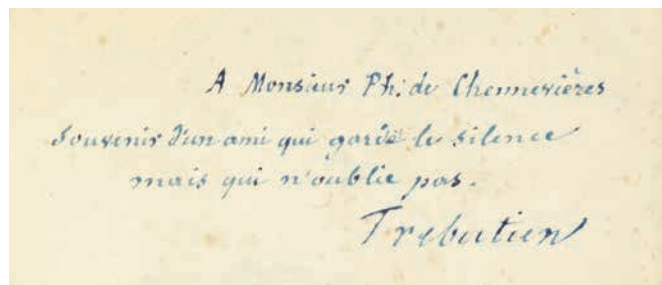 A Monsieur Ph. de Chennevières
Souvenir d'un ami qui garde le silence
mais qui n'oublie pas.
Trebutien